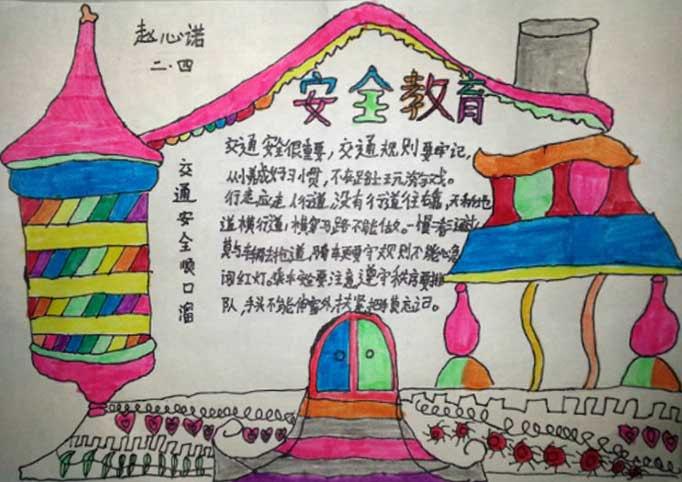 赵心诺
二·四
安全教育
交通安全顺口溜
交通安全很重要,交通规则要牢记,
从小养成好习惯,不在路上玩游戏。
行走应走人行道,没有行道往右靠,天桥地
道横行道,横穿马路不能做。一慢二看三通过,
莫与车辆去抢道,骑车更要守规则,不能心急
闯红灯。乘车安全要注意,遵守秩序要排
队,手头不能伸窗外,扶紧把手莫忘记。